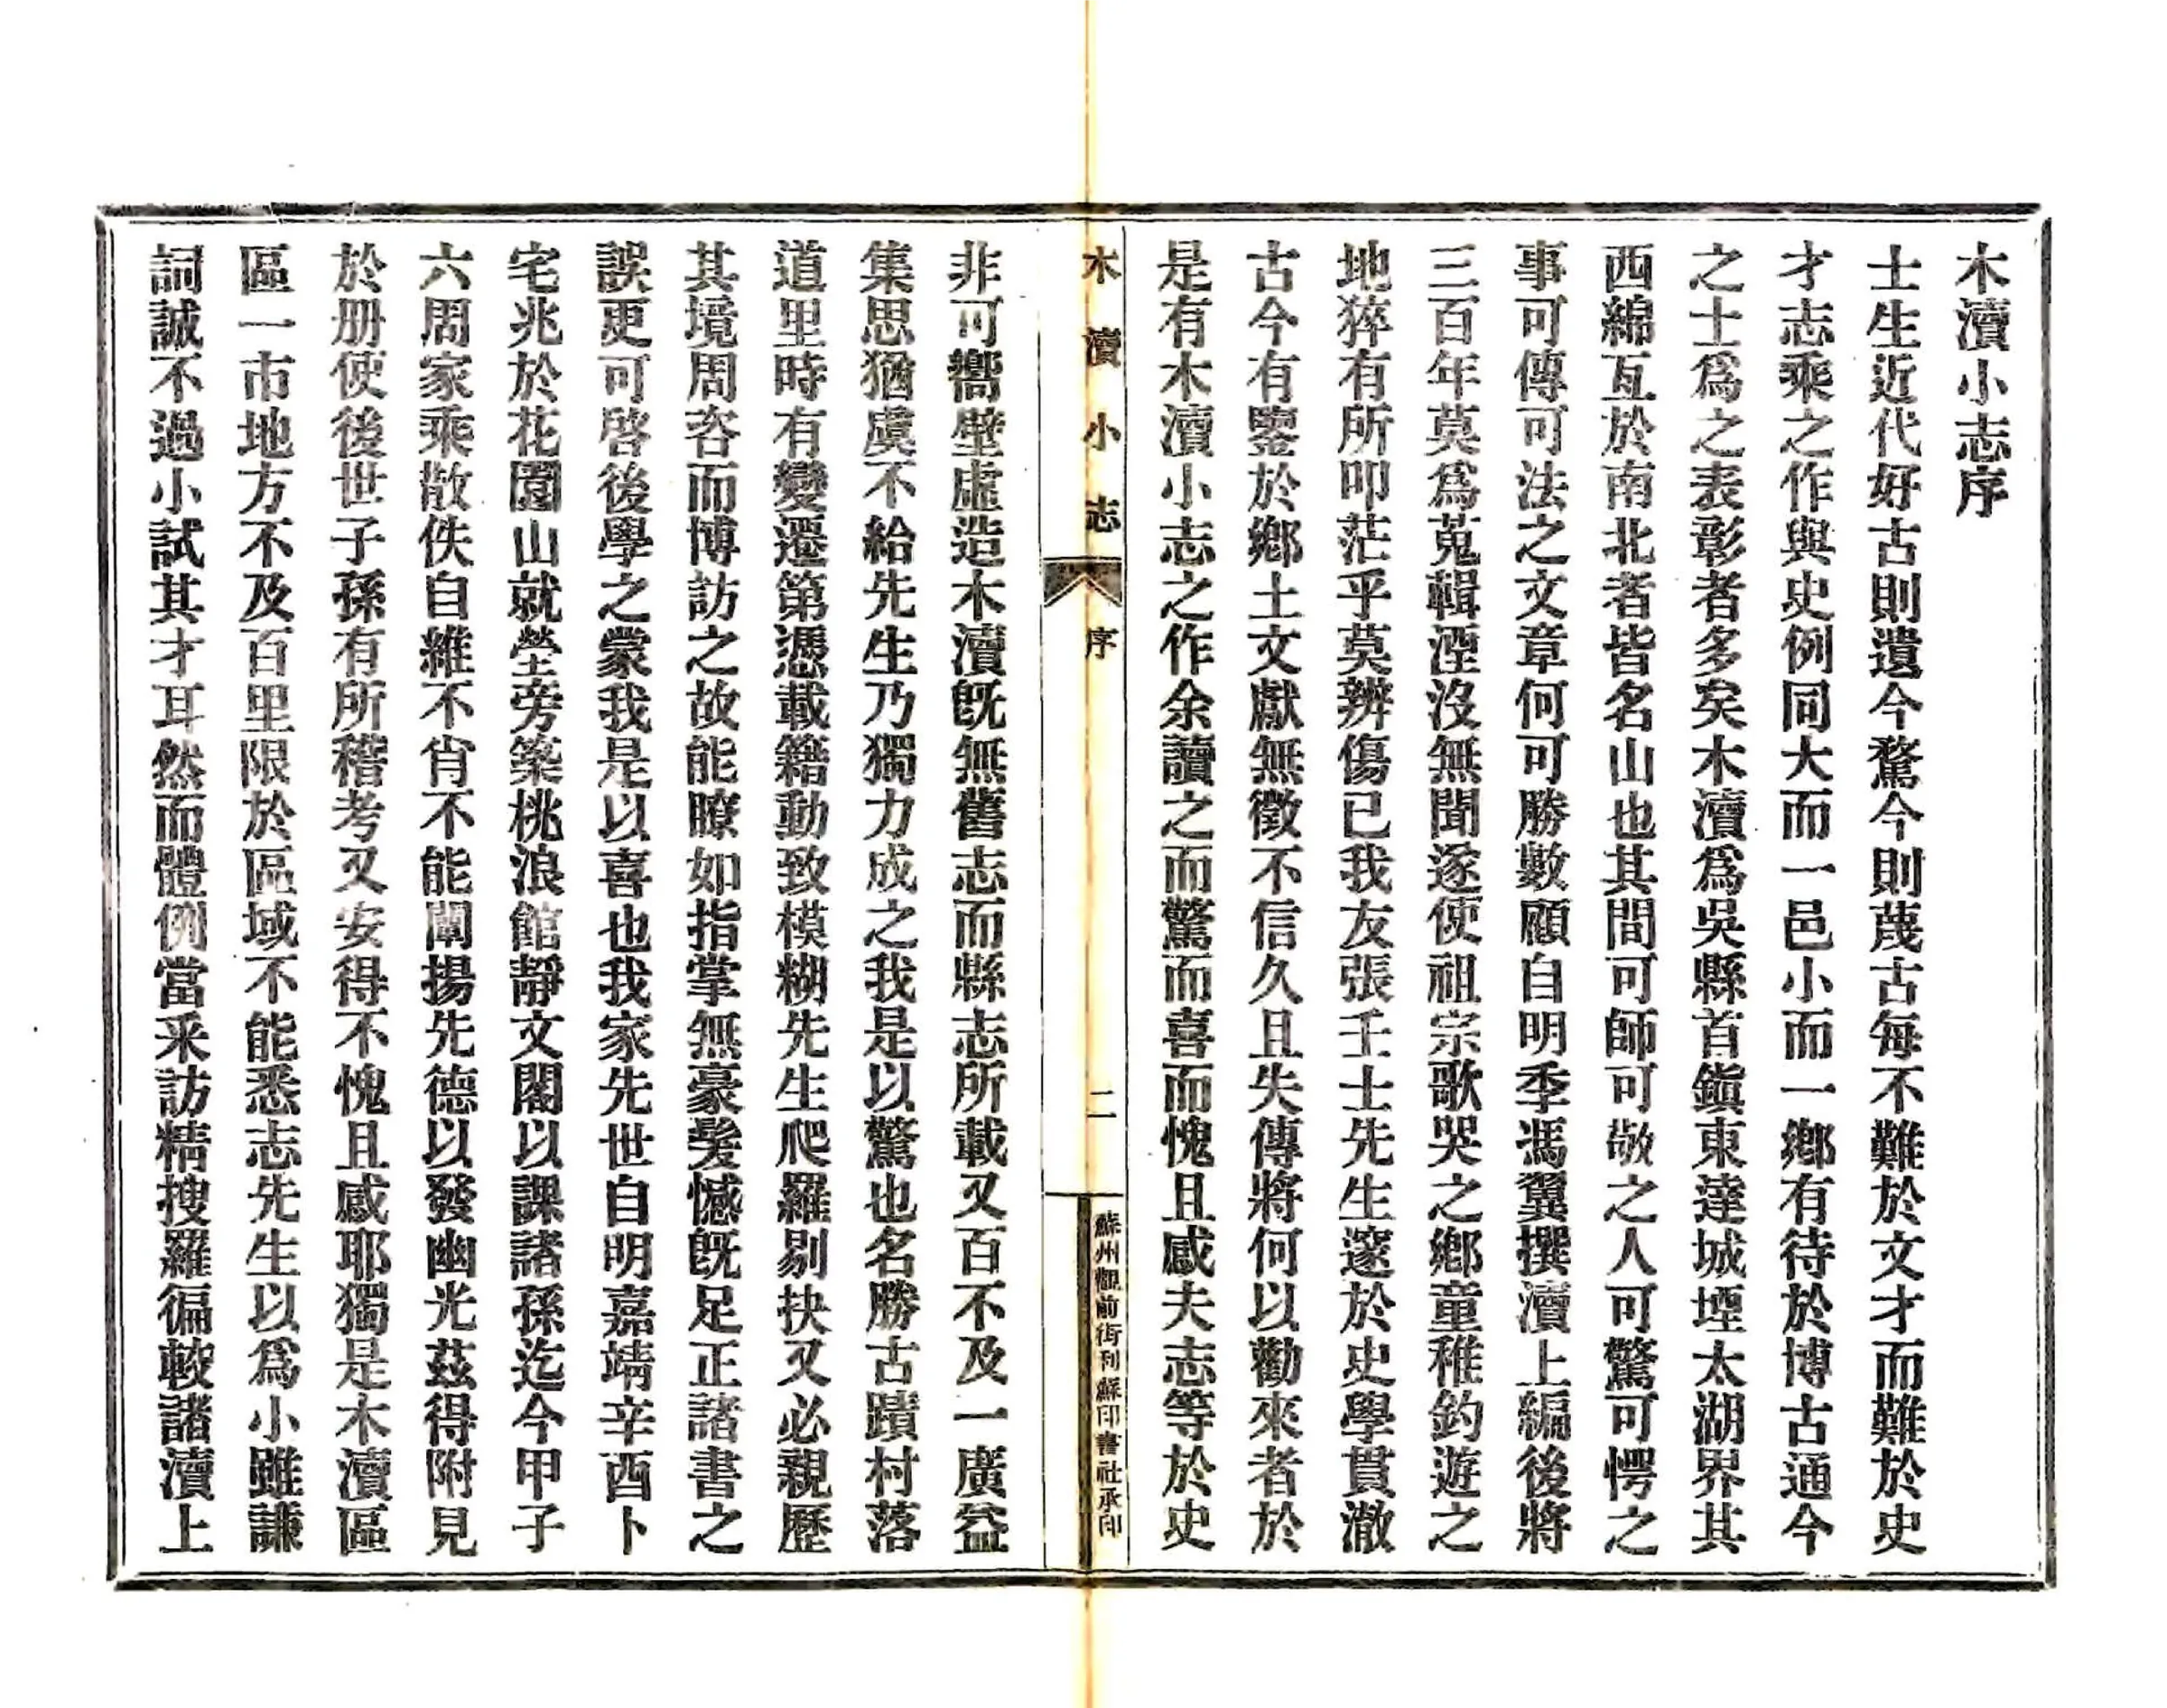 木瀆小志序
士生近代好古則遺今騖今則蔑古每不難於文才而難於史
才志乘之作與史例同大而一邑小而一鄉有待於博古通今
之士爲之表彰者多矣木瀆爲吳縣首鎭東達城堙太湖界其
西綿亙於南北者皆名山也其間可師可敬之人可驚可愕之
事可傳可法之文章何可勝數顧自明季馮翼撰瀆上編後將
三百年莫爲蒐輯湮沒無聞遂使祖宗歌哭之鄉童稚釣遊之
地猝有所叩茫乎莫辨傷已我友張壬士先生邃於史學貫澈
古今有鑒於鄉土文獻無徵不信久且失傳將何以勸來者於
是有木瀆小志之作余讀之而驚而喜而愧且感夫志等於史
木瀆小志
序
二
蘇州觀前街利蘇印書社承印
非可嚮壁虛造木瀆旣無舊志而縣志所載又百不及一廣益
集思猶虞不給先生乃獨力成之我是以驚也名勝古蹟村落
道里時有變遷第憑載籍動致模糊先生爬羅剔抉又必親歷
其境周咨而博訪之故能瞭如指掌無豪髮憾旣足正諸書之
誤更可啓後學之蒙我是以喜也我家先世自明嘉靖辛酉卜
宅兆於花園山就塋旁築桃浪館靜文閣以課諸孫迄今甲子
六周家乘散佚自維不肖不能闡揚先德以發幽光茲得附見
於册使後世子孫有所稽考又安得不愧且感耶獨是木瀆區
區一市地方不及百里限於區域不能悉志先生以爲小雖謙
詞誠不過小試其才耳然而體例當采訪精搜羅徧較諸瀆上